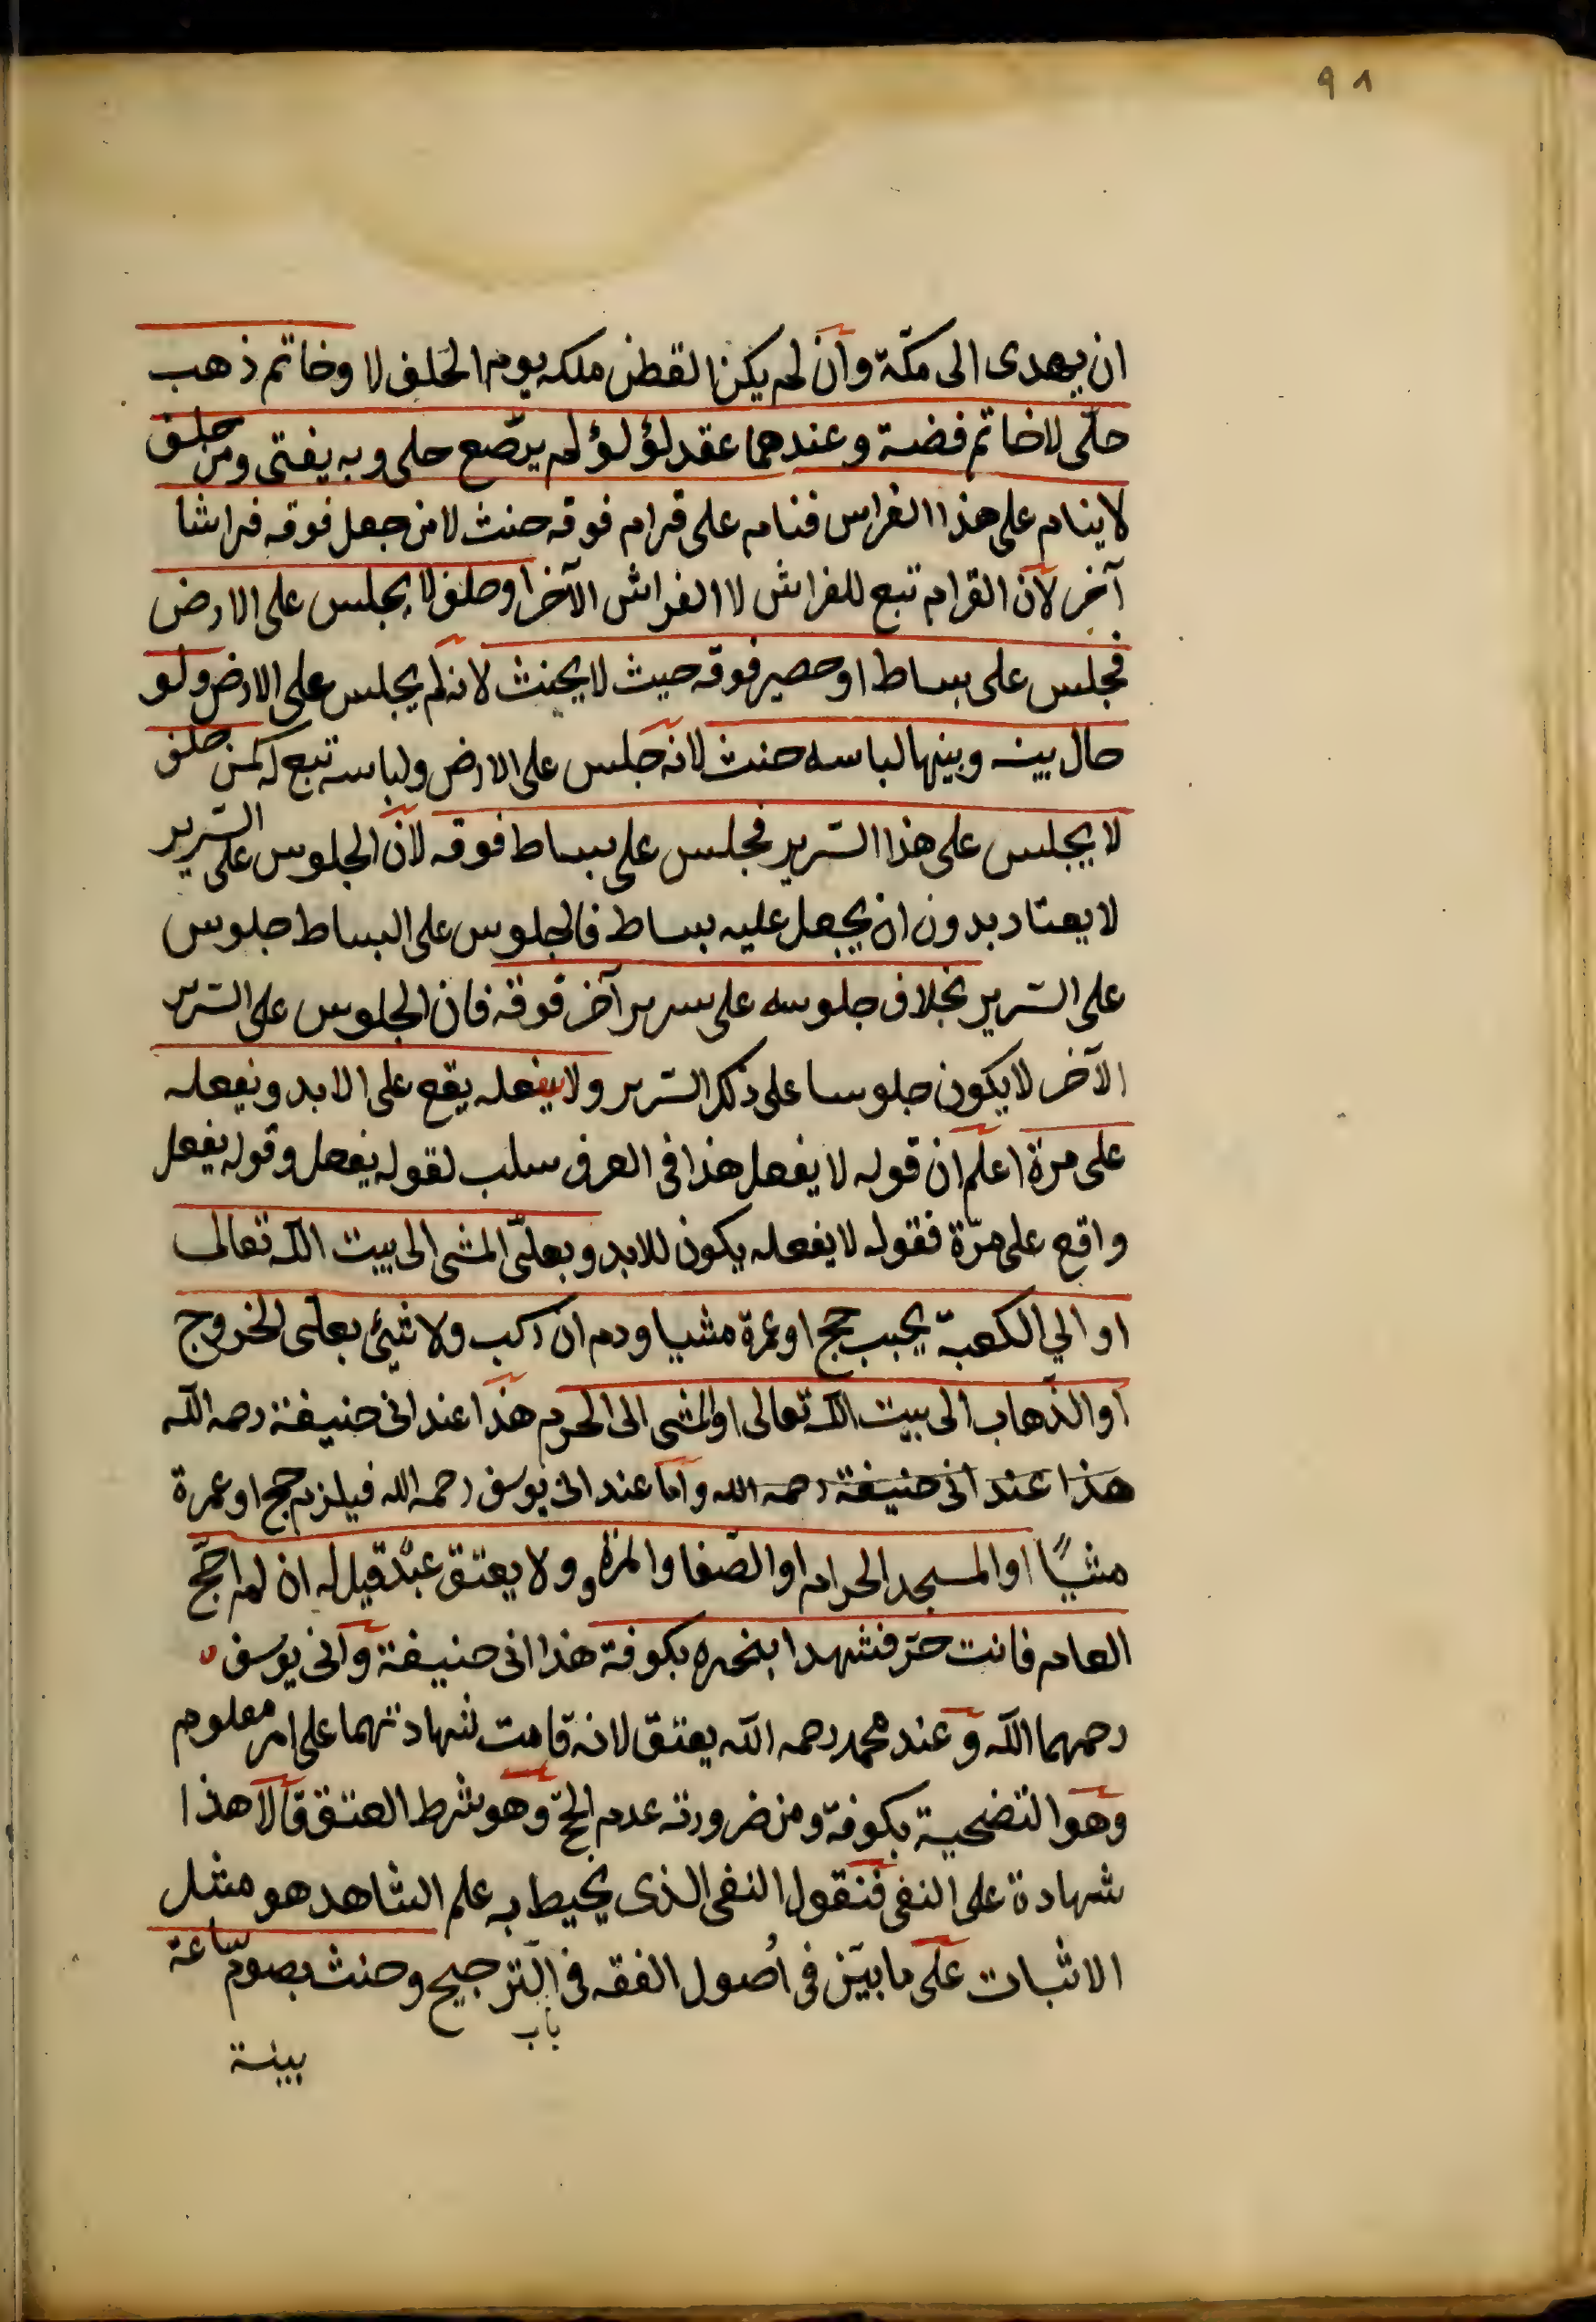 ٩٨
ان يهدى الى مكّة وان لم يكن القطن ملكه يوم الحلف لا وخاتم ذهب
حلّى لا خاتم فضة وعندهما عقد لؤلؤ لم يرّصع حلى وبه يفتى ومن حلف
لا ينام على هذا الفراس فنام على قرام فوقه حنث لا من جعل فوقه فراشا
آخر لان القرام تبع للفراش لا الفراش الآخر او حلف لا يجلس على الارض
فجلس على بساط او حصير فوقه حيث لا يحنث لانه لم يجلس على الارض ولو
حال بينه وبينها لباسه حنث لانه جلس على الارض ولباسه تبع له كمن حلف
لا يجلس على هذا السّرير فجلس على بساط فوقه لان الجلوس على السّرير
لا يعتاد بدون ان يجعل عليه بساط فالجلوس على البساط جلوس
على السّرير بخلاف جلوسه على سرير آخر فوقه فان الجلوس على السّرير
الآخر لا يكون جلوسا على ذلك السّرير ولا يفعله يقع على الابد ويفعله
على مرة اعلم ان قوله لا يفعل هذا فى العرف سلب لقوله يفعل وقوله يفعل
واقع على مرّة فقوله لا يفعله يكون للابد وبعلىّ المشى الى بيت الله تعالى
او الي الكعبة يجب حج او عمرة مشيا ودم ان ركب ولا شيئ بعلى الخروج
او الذّهاب الى بيت الله تعالى او المشى الى الحرم هذا عند ابى حنيفة رحمه الله
هذا عند ابى حنيفة رحمه الله واما عند ابى يوسف رحمه الله فيلزم حج او عمرة
مشيًا او المسجد الحرام او الصّفا والمروة ولا يعتق عبدٌ قيل له ان لم احجّ
العام فانت حرّ فشهدا بنحره بكوفة هذا ابى حنيفة وابى يوسف
رحمهما الله وعند محمد رحمه الله يعتق لانه قامت شهادتهما على امر معلوم
وهو التضحية بكوفة ومن ضرورته عدم الحجّ وهو شرط العتق قالا هذا
شهادة على النفى فنقول النفى الذى يحيط به علم الشاهد هو مثل
الاثبات على ما بيّن فى اُصول الفقه فى باب التّرجيح وحنث بصوم ساعة
بينة